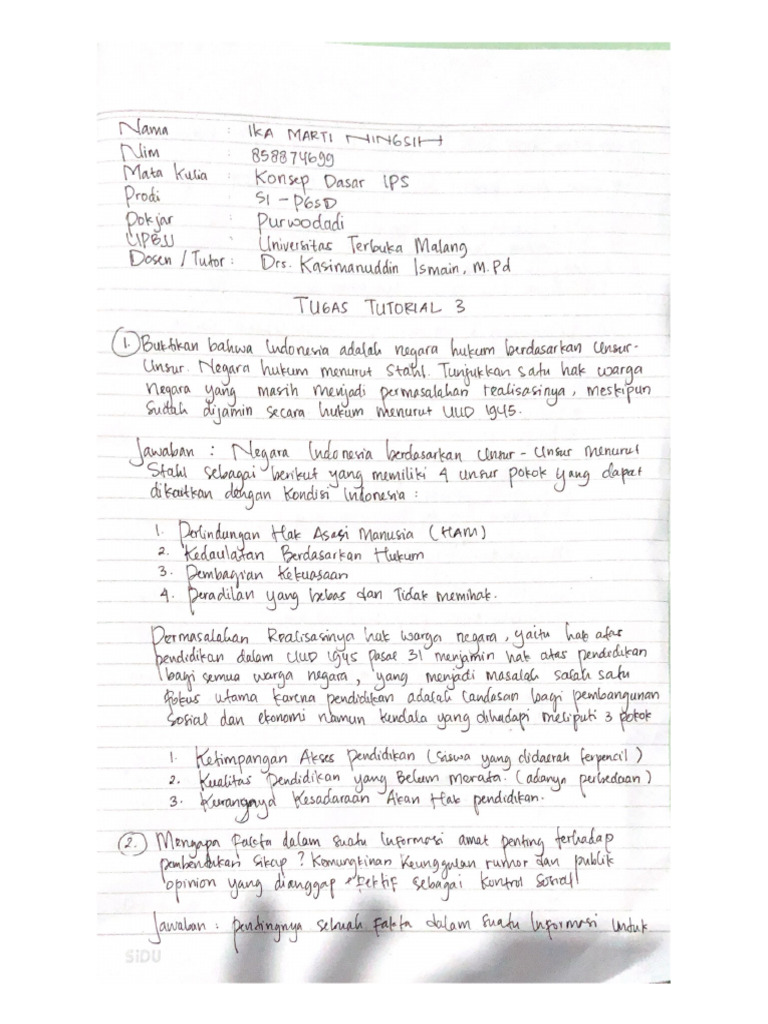 Nama : IKA MARTI NINGSIH
Nim : 858874699
Mata Kulia : Konsep Dasar IPS
Prodi : S1 - PGSD
Pokjar : Purwodadi
UPBJJ : Universitas Terbuka Malang
Dosen / Tutor : Drs. Kasimanuddin Ismain, M.Pd
TUGAS TUTORIAL 3
1. Buktikan bahwa Indonesia adalah negara hukum berdasarkan Unsur-
Unsur. Negara hukum menurut Stahl. Tunjukkan satu hak warga
negara yang masih menjadi permasalahan realisasinya, meskipun
sudah dijamin secara hukum menurut UUD 1945.
Jawaban : Negara Indonesia berdasarkan Unsur - Unsur menurut
Stahl sebagai berikut yang memiliki 4 unsur pokok yang dapat
dikaitkan dengan Kondisi Indonesia :
1. Perlindungan Hak Asasi Manusia (HAM)
2. Kedaulatan Berdasarkan Hukum
3. Pembagian Kekuasaan
4. Peradilan yang bebas dan Tidak memihak.
Permasalahan Realisasinya hak warga negara, yaitu hak atas
pendidikan dalam UUD 1945 pasal 31 menjamin hak atas pendidikan
bagi semua warga negara, yang menjadi masalah salah satu
fokus utama karena pendidikan adalah landasan bagi pembangunan
sosial dan ekonomi namun kendala yang dihadapi meliputi 3 pokok
1. Ketimpangan Akses pendidikan (siswa yang didaerah terpencil)
2. Kualitas Pendidikan yang Belum merata. (adanya perbedaan)
3. Kurangnya Kesadaraan Akan Hak pendidikan.
2. Mengapa Fakta dalam suatu Informasi amat penting terhadap
pembentukan sikap? Kemungkinan Keunggulan rumor dan publik
opinion yang dianggap efektif sebagai Kontrol Sosial
Jawaban : pentingnya sebuah Fakta dalam suatu Informasi untuk
SiDU